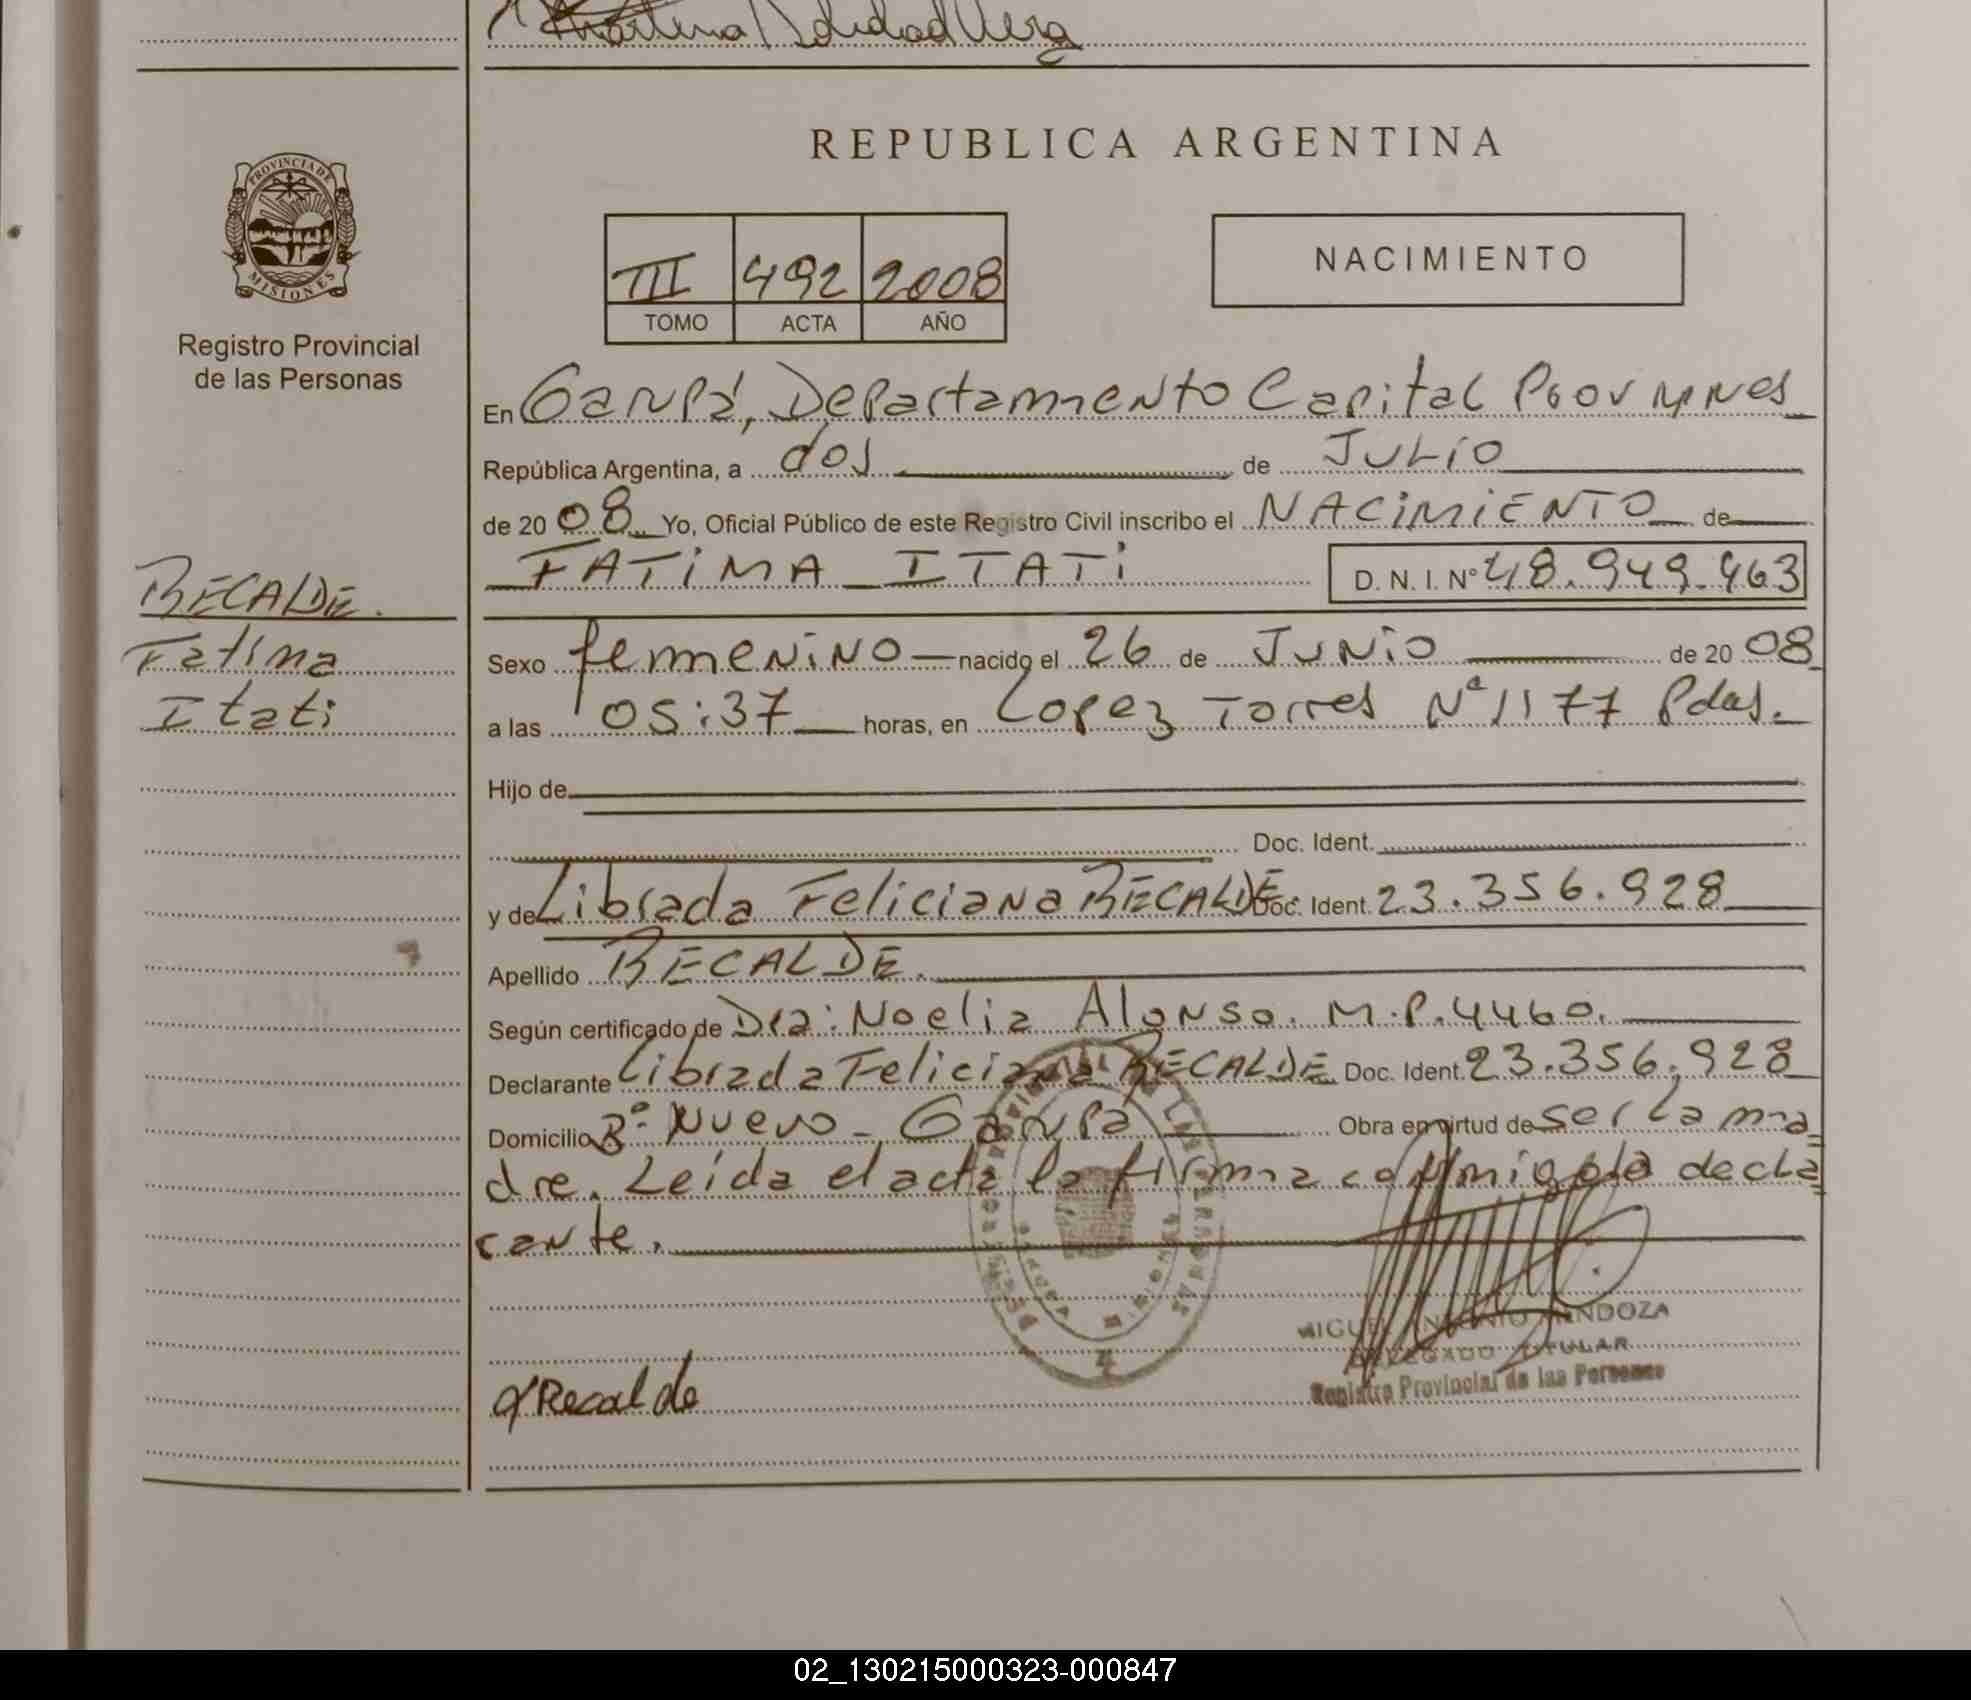 Soledad Vera
REPUBLICA ARGENTINA
PROVINCIA DE
MISIONES
Registro Provincial
de las Personas
III 492 2008
TOMO ACTA AÑO
NACIMIENTO
En Garupá, Departamento Capital Prov Mnes
República Argentina, a dos de JULIO
de 20 08 Yo, Oficial Público de este Registro Civil inscribo el NACIMIENTO de
FATIMA ITATI D. N. I. Nº 48.949.463
RECALDE.
Fatima
Itati
Sexo femenino nacido el 26 de JUNIO de 20 08
a las 05:37 horas, en Lopez Torres Nº 1177 Pdas.
Hijo de
Doc. Ident.
y de Librada Feliciana RECALDE Doc. Ident. 23.356.928
Apellido RECALDE.
Según certificado de Dra: Noelia Alonso. M.P. 4460.
Declarante Librada Feliciana RECALDE Doc. Ident. 23.356.928
Domicilio Bº Nuevo - Garupá Obra en virtud de ser la ma=
dre. Leída el acta la firma conmigo la decla=
rante.
MIGUEL ANTONIO MENDOZA
DELEGADO TITULAR
Registro Provincial de las Personas
Recalde
02_130215000323-000847